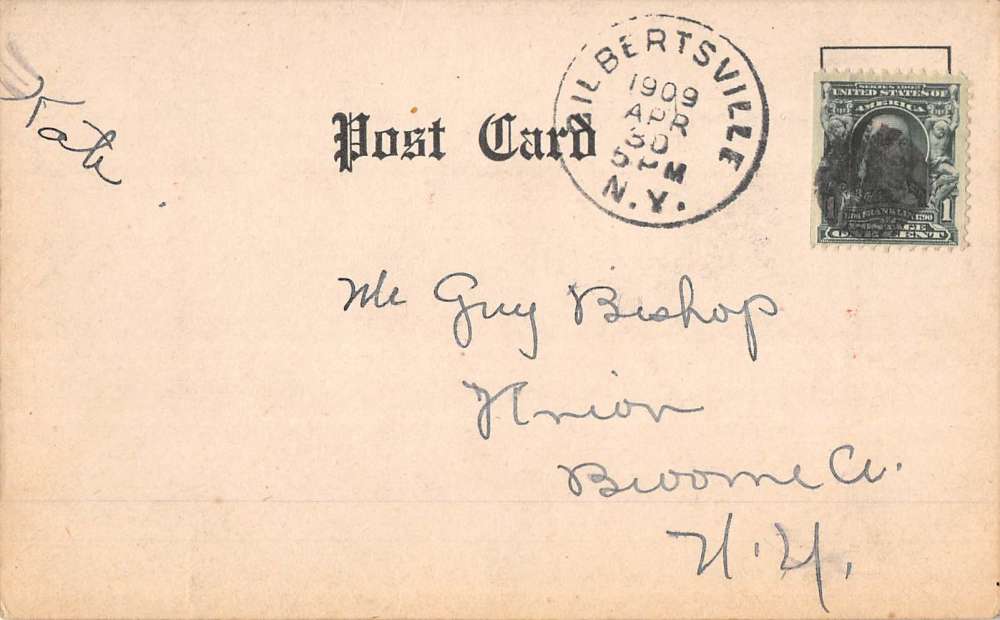 Kate
Post Card
GILBERTSVILLE
1909
APR
30
5 PM
N.Y.
SERIES 1902
UNITED STATES OF
AMERICA
FRANKLIN 1790
1
ONE CENT
Mr Guy Bishop
Union
Broome Co.
N.Y.